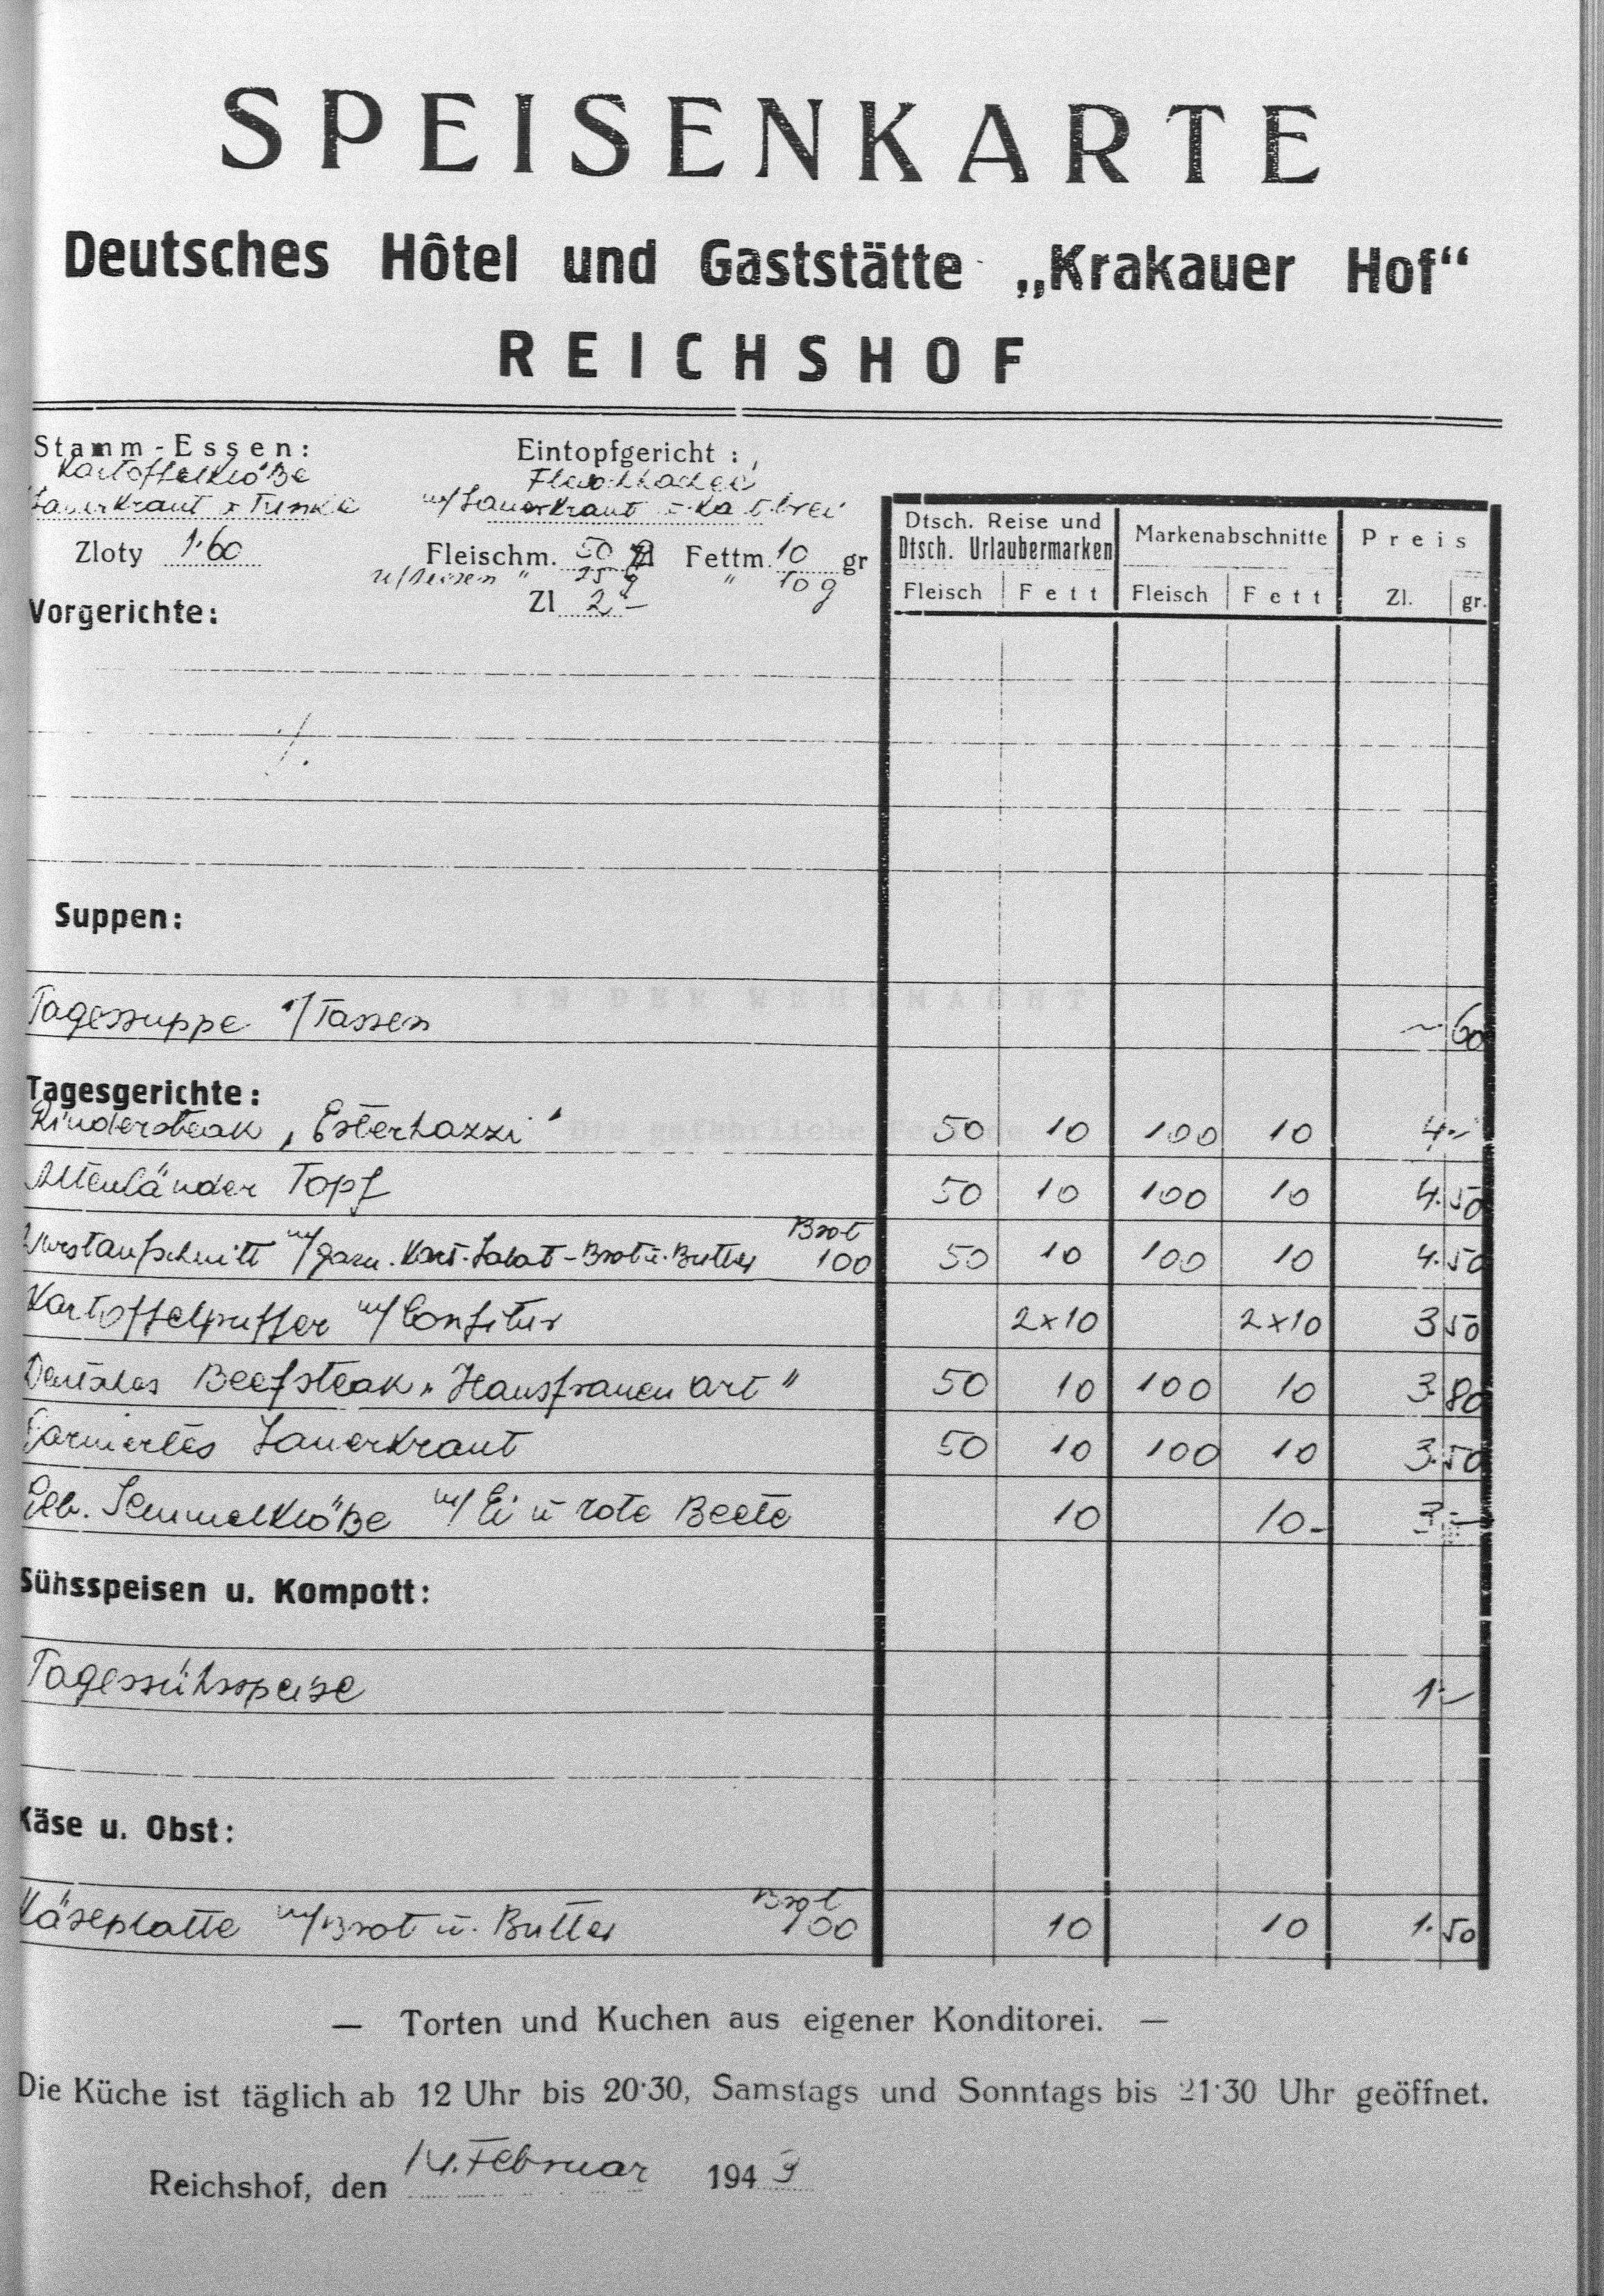 SPEISENKARTE
Deutsches Hôtel und Gaststätte „Krakauer Hof“
REICHSHOF
Stamm-Essen:
Kartoffelklöße
Sauerkraut Tunke
Zloty 1·60
Eintopfgericht:
w/ Sauerkraut
Fleischm. 50 g Fettm. 10 gr
" 25 g " 10 g
Zl 2.-
Dtsch. Reise und Dtsch. Urlaubermarken Markenabschnitte Preis
Fleisch Fett Fleisch Fett Zl. gr.
Vorgerichte:
./.
Suppen:
Tagessuppe i/Tassen - 60
Tagesgerichte:
Rindersteak „Esterhazzi" 50 10 100 10 4.-
Altenländer Topf 50 10 100 10 4.50
Wurstaufschnitt m/garn. Kart. Salat - Brot u. Butter Brot 100 50 10 100 10 4.50
Kartoffelpuffer m/ Confitur 2x10 2x10 3 50
Deutsches Beefsteak „Hausfrauen art" 50 10 100 10 3.80
Garniertes Sauerkraut 50 10 100 10 3.50
Geb. Semmelklöße m/ Ei u rote Beete 10 10- 3.-
Sühsspeisen u. Kompott:
Tagessühsspeise 1.-
Käse u. Obst:
Käseplatte m/Brot u. Butter Brot 100 10 10 1.50
— Torten und Kuchen aus eigener Konditorei. —
Die Küche ist täglich ab 12 Uhr bis 20·30, Samstags und Sonntags bis 21·30 Uhr geöffnet.
Reichshof, den 14. Februar 194